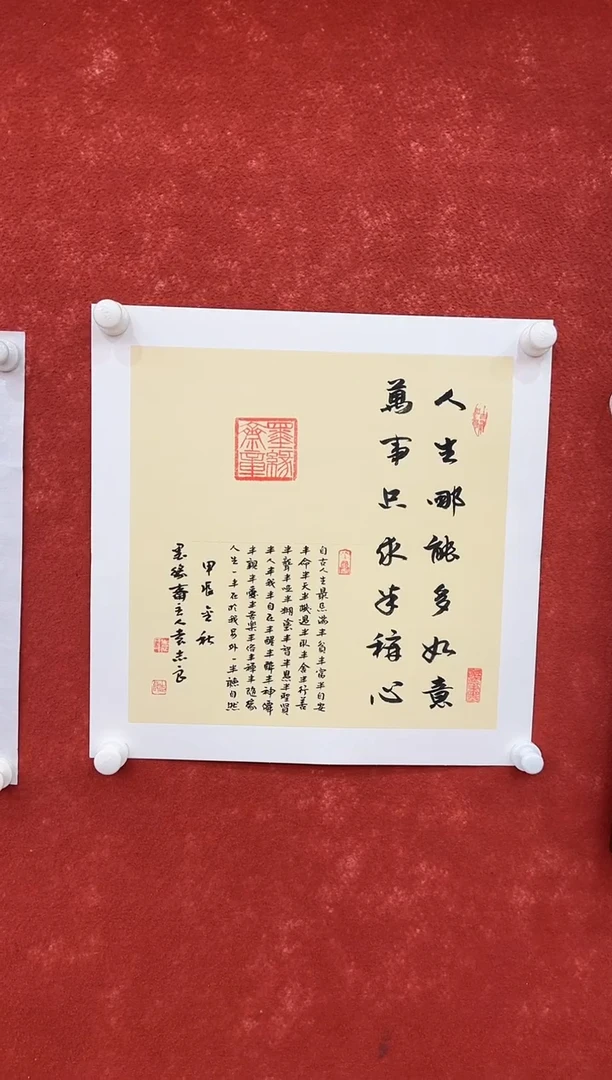 人生哪能多如意
萬事只求半稱心
自古人生最忌滿半貧半富半自安
半命半天半機遇半取半舍半行善
半聾半啞半糊塗半智半愚半聖賢
半人半我半自在半醒半醉半神僊
半親半愛半苦樂半俗半禪半隨緣
人生一半在於我另外一半聽自然
甲辰金秋
墨緣齋主人袁志良
墨緣齋